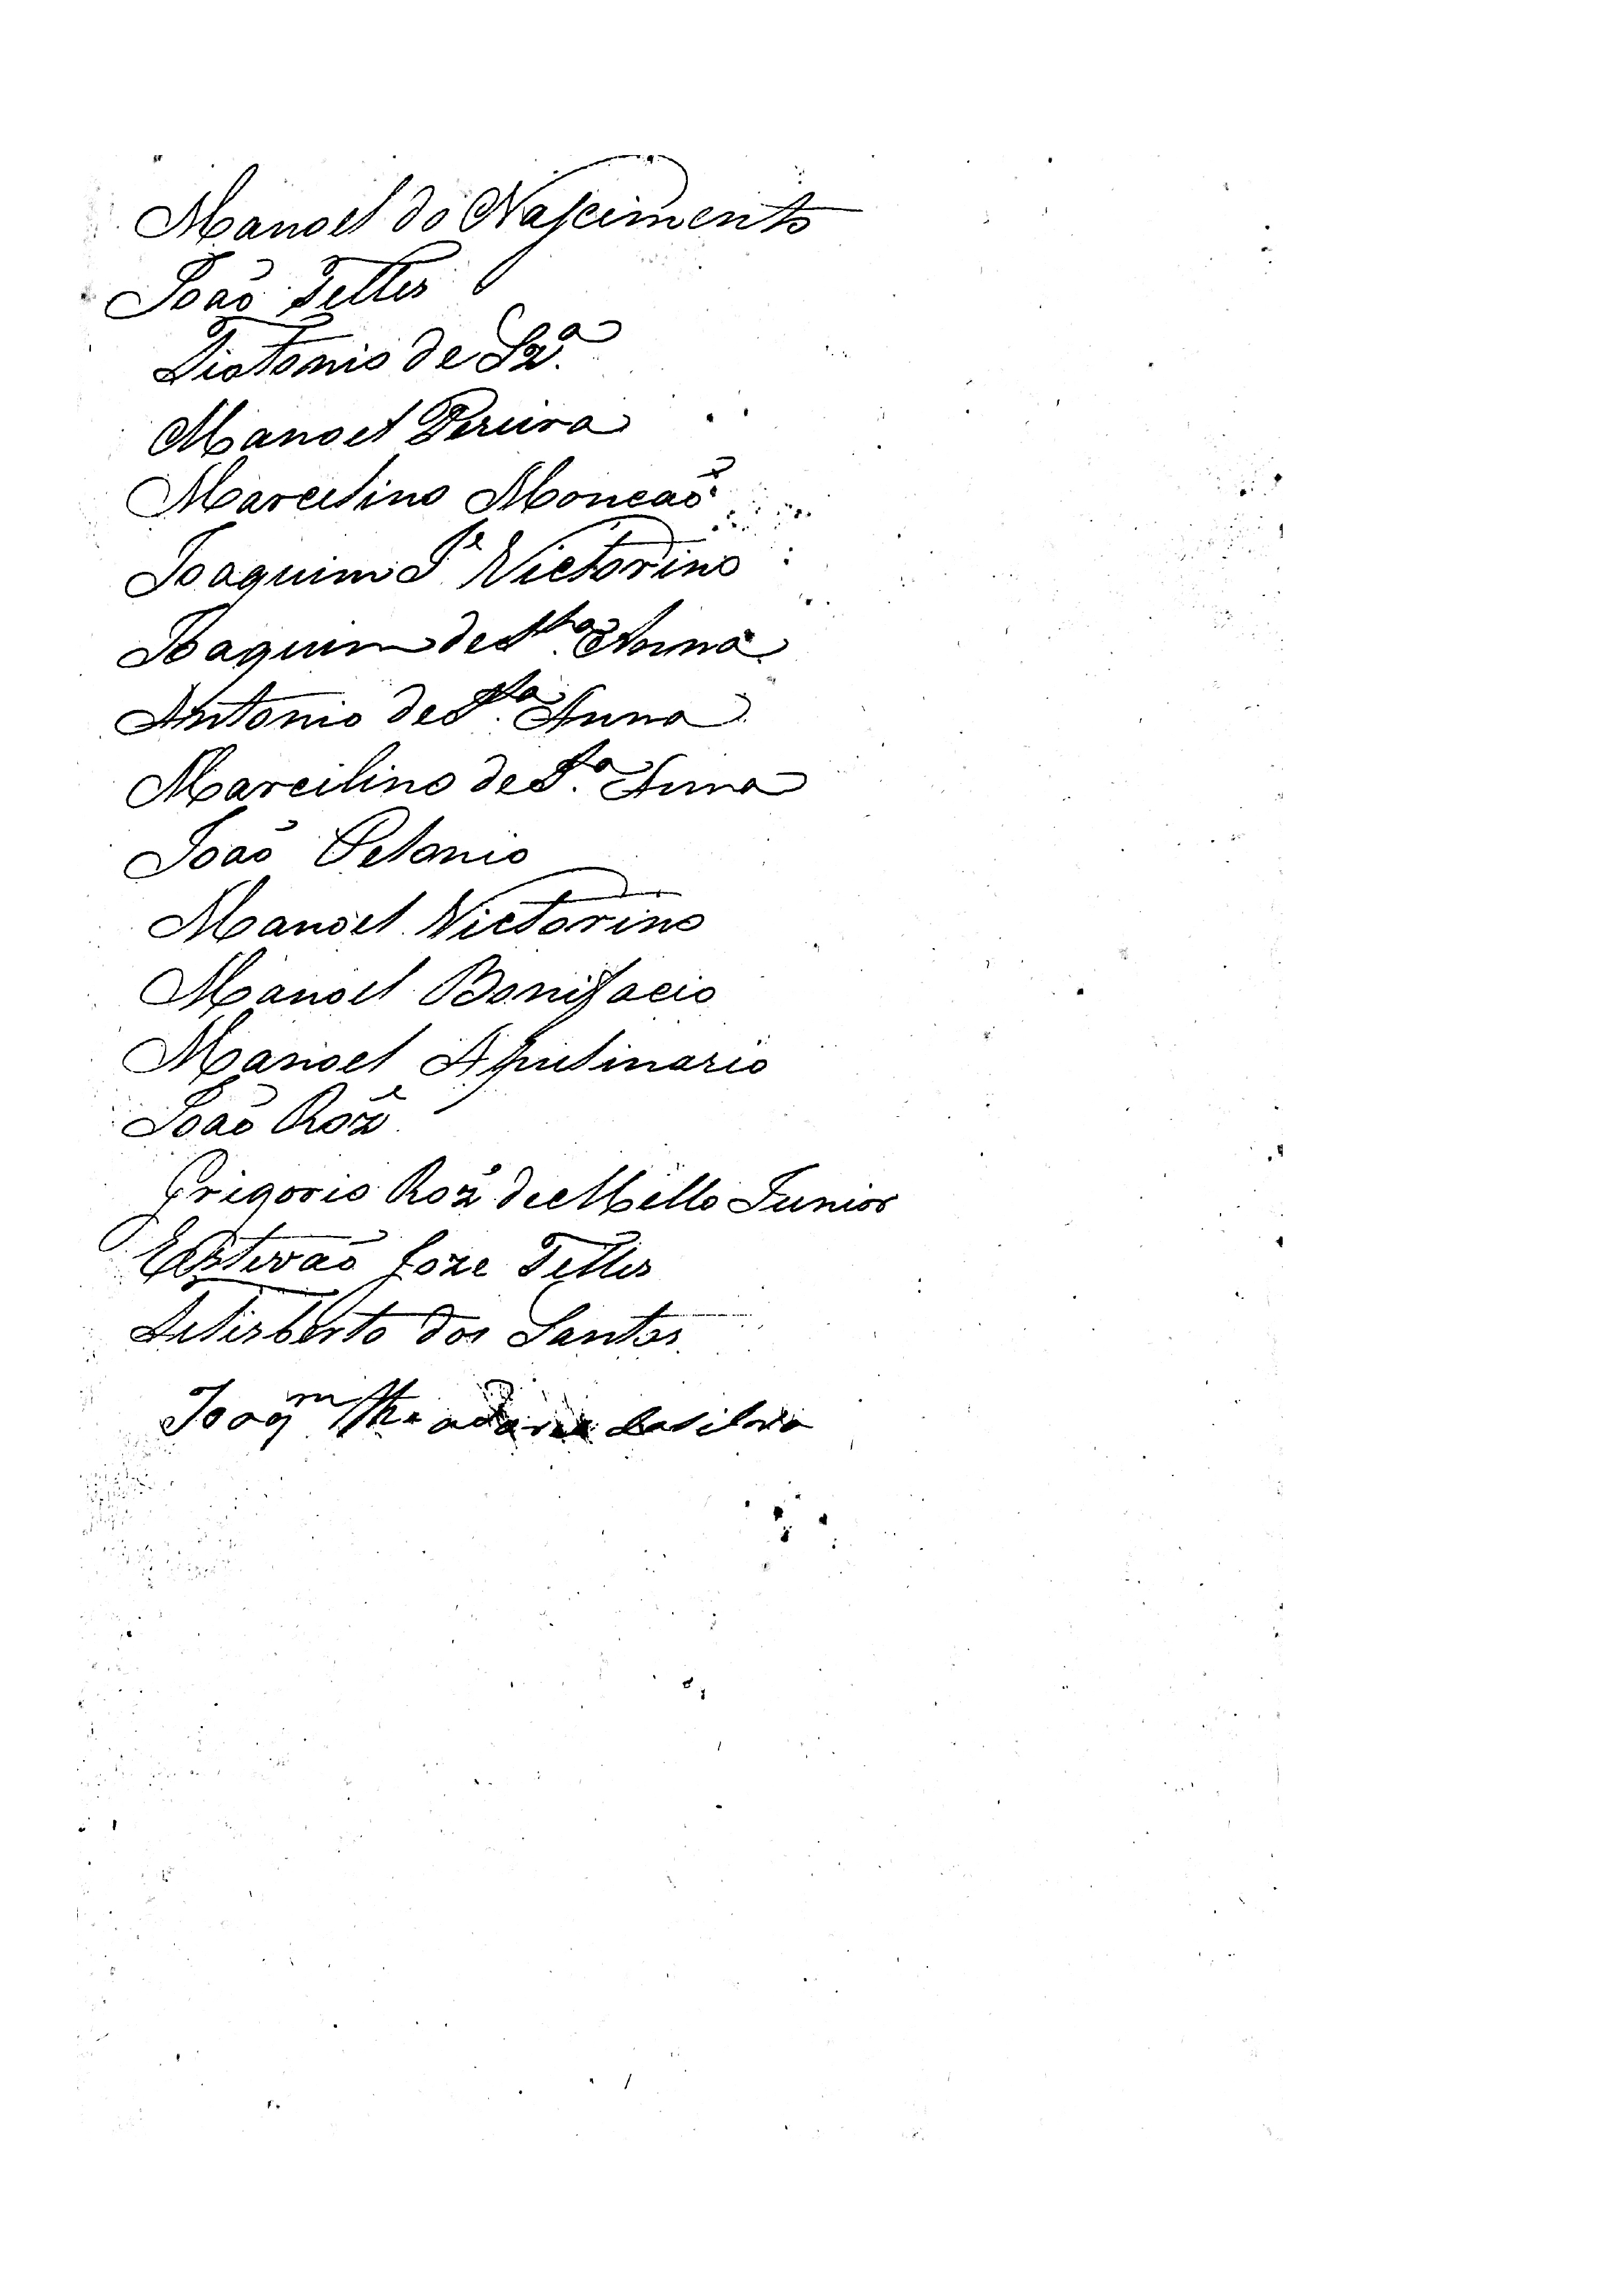 Manoel do Nascimento
João Telles
Diotonio de Sz.ª
Manoel Pereira
Marcelino Moncaõ
Joaquim J.e Victorino
Joaquim de S.ta Anna
Antonio de S.ta Anna
Marcilino de S.ta Anna
João Petonio
Manoel Victorino
Manoel Bonifacio
Manoel Apulinario
João Roz.e
Grigorio Roz.e de Mello Junior
Estevaõ Joze Telles
dos Santos
Joaq.m da silva